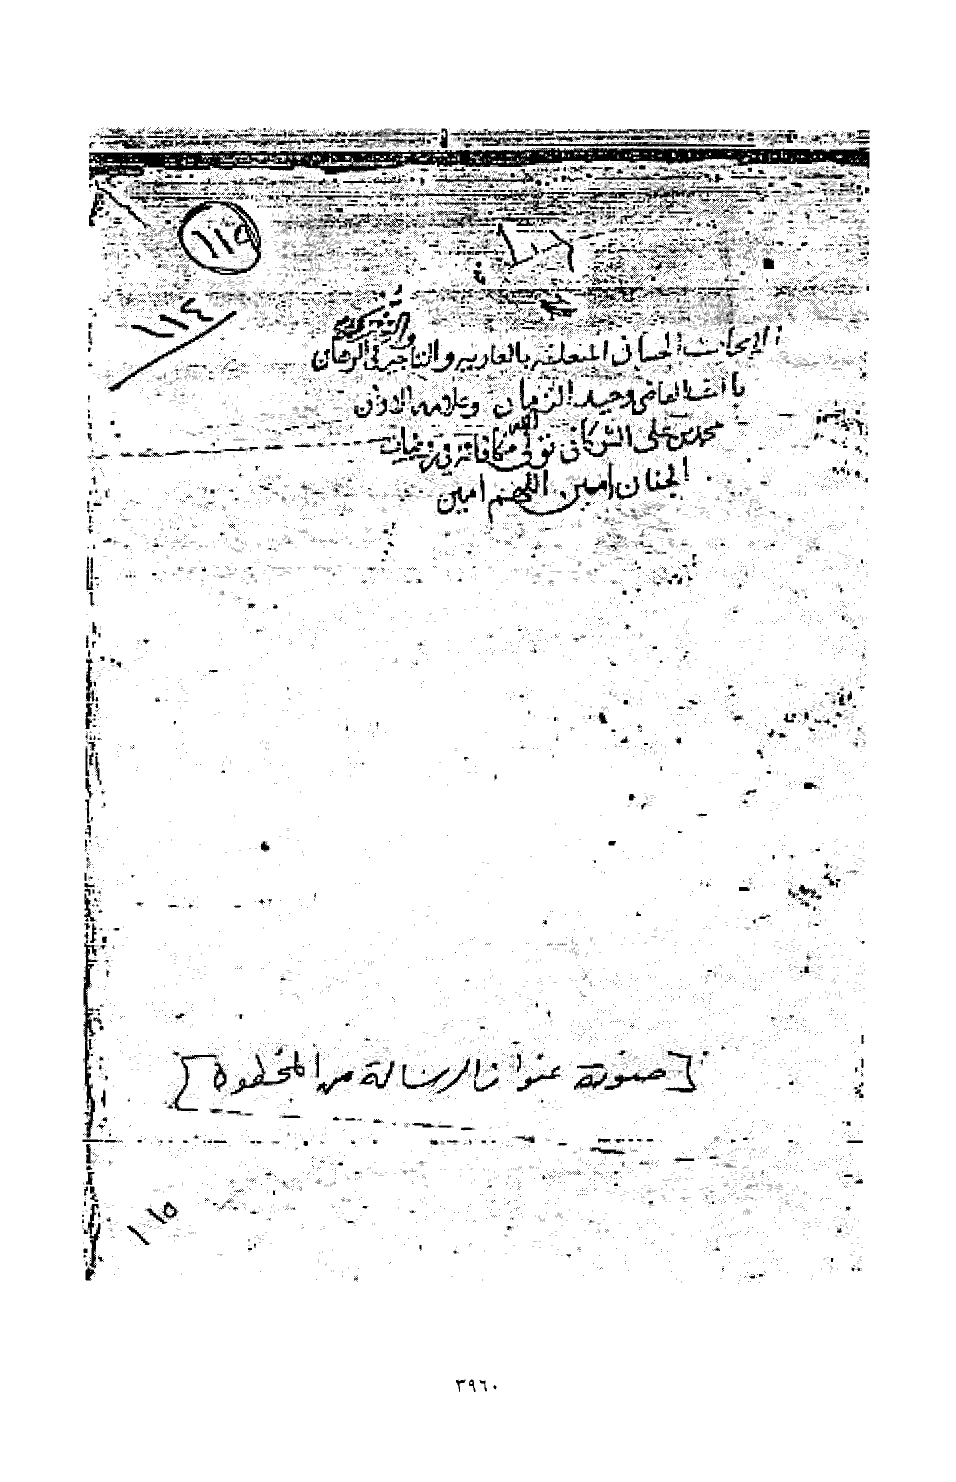 ١١٥
١١٤
الابحاث الحسان المتعلقه بالعاريه والتأجير والشركه والرهان
تأليف القاضي وحيد الزمان وعلامه الاوان
محمد بن علي الشوكاني تولى الله مكافاته في روضات
الجنان امين اللهم امين
[صورة عنوان الرسالة من المخطوط]
١١٥
٣٩٦٠